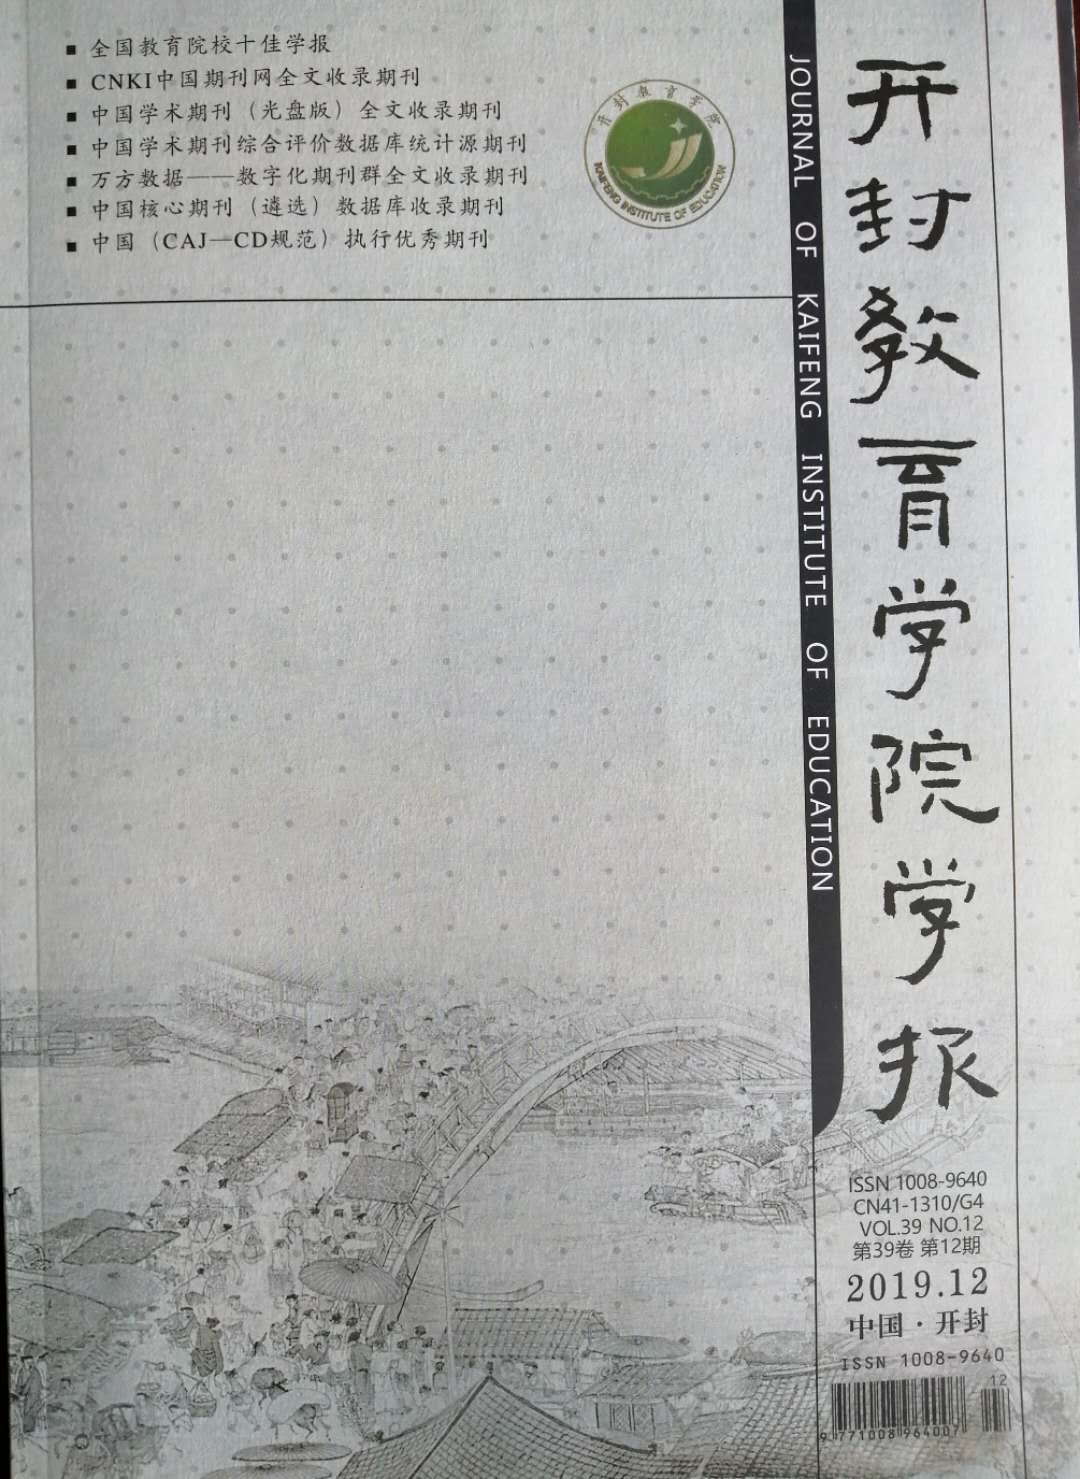 全国教育院校十佳学报
CNKI中国期刊网全文收录期刊
中国学术期刊（光盘版）全文收录期刊
中国学术期刊综合评价数据库统计源期刊
万方数据——数字化期刊群全文收录期刊
中国核心期刊（遴选）数据库收录期刊
中国（CAJ—CD规范）执行优秀期刊
开封教育学院
KAIFENG INSTITUTE OF EDUCATION
JOURNAL OF KAIFENG INSTITUTE OF EDUCATION
开封教育学院学报
ISSN 1008-9640
CN41-1310/G4
VOL.39 NO.12
第39卷 第12期
2019.12
中国·开封
ISSN 1008-9640
12
9 771008 964007